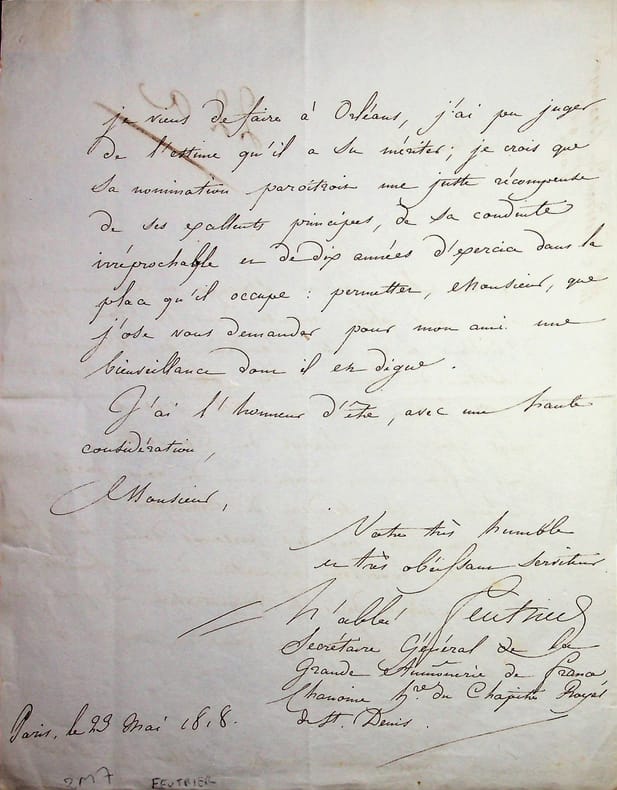 je viens de faire à Orléans, j'ai pu juger
de l'estime qu'il a su mériter; je crois que
sa nomination paroîtroit une juste récompense
de ses excellents principes, de sa conduite
irréprochable et de dix années d'exercice dans la
place qu'il occupe : permettez, Monsieur, que
j'ose vous demander pour mon ami une
bienveillance dont il est digne.
J'ai l'honneur d'être, avec une haute
considération,
Monsieur,
Votre très humble
et très obéissant serviteur
L'abbé Feutrier
Secrétaire Général de la
Grande Aumônerie de France
Chanoine hre. du Chapitre Royal
de St. Denis.
Paris, le 23 Mai 1818.
2M7 FEUTRIER